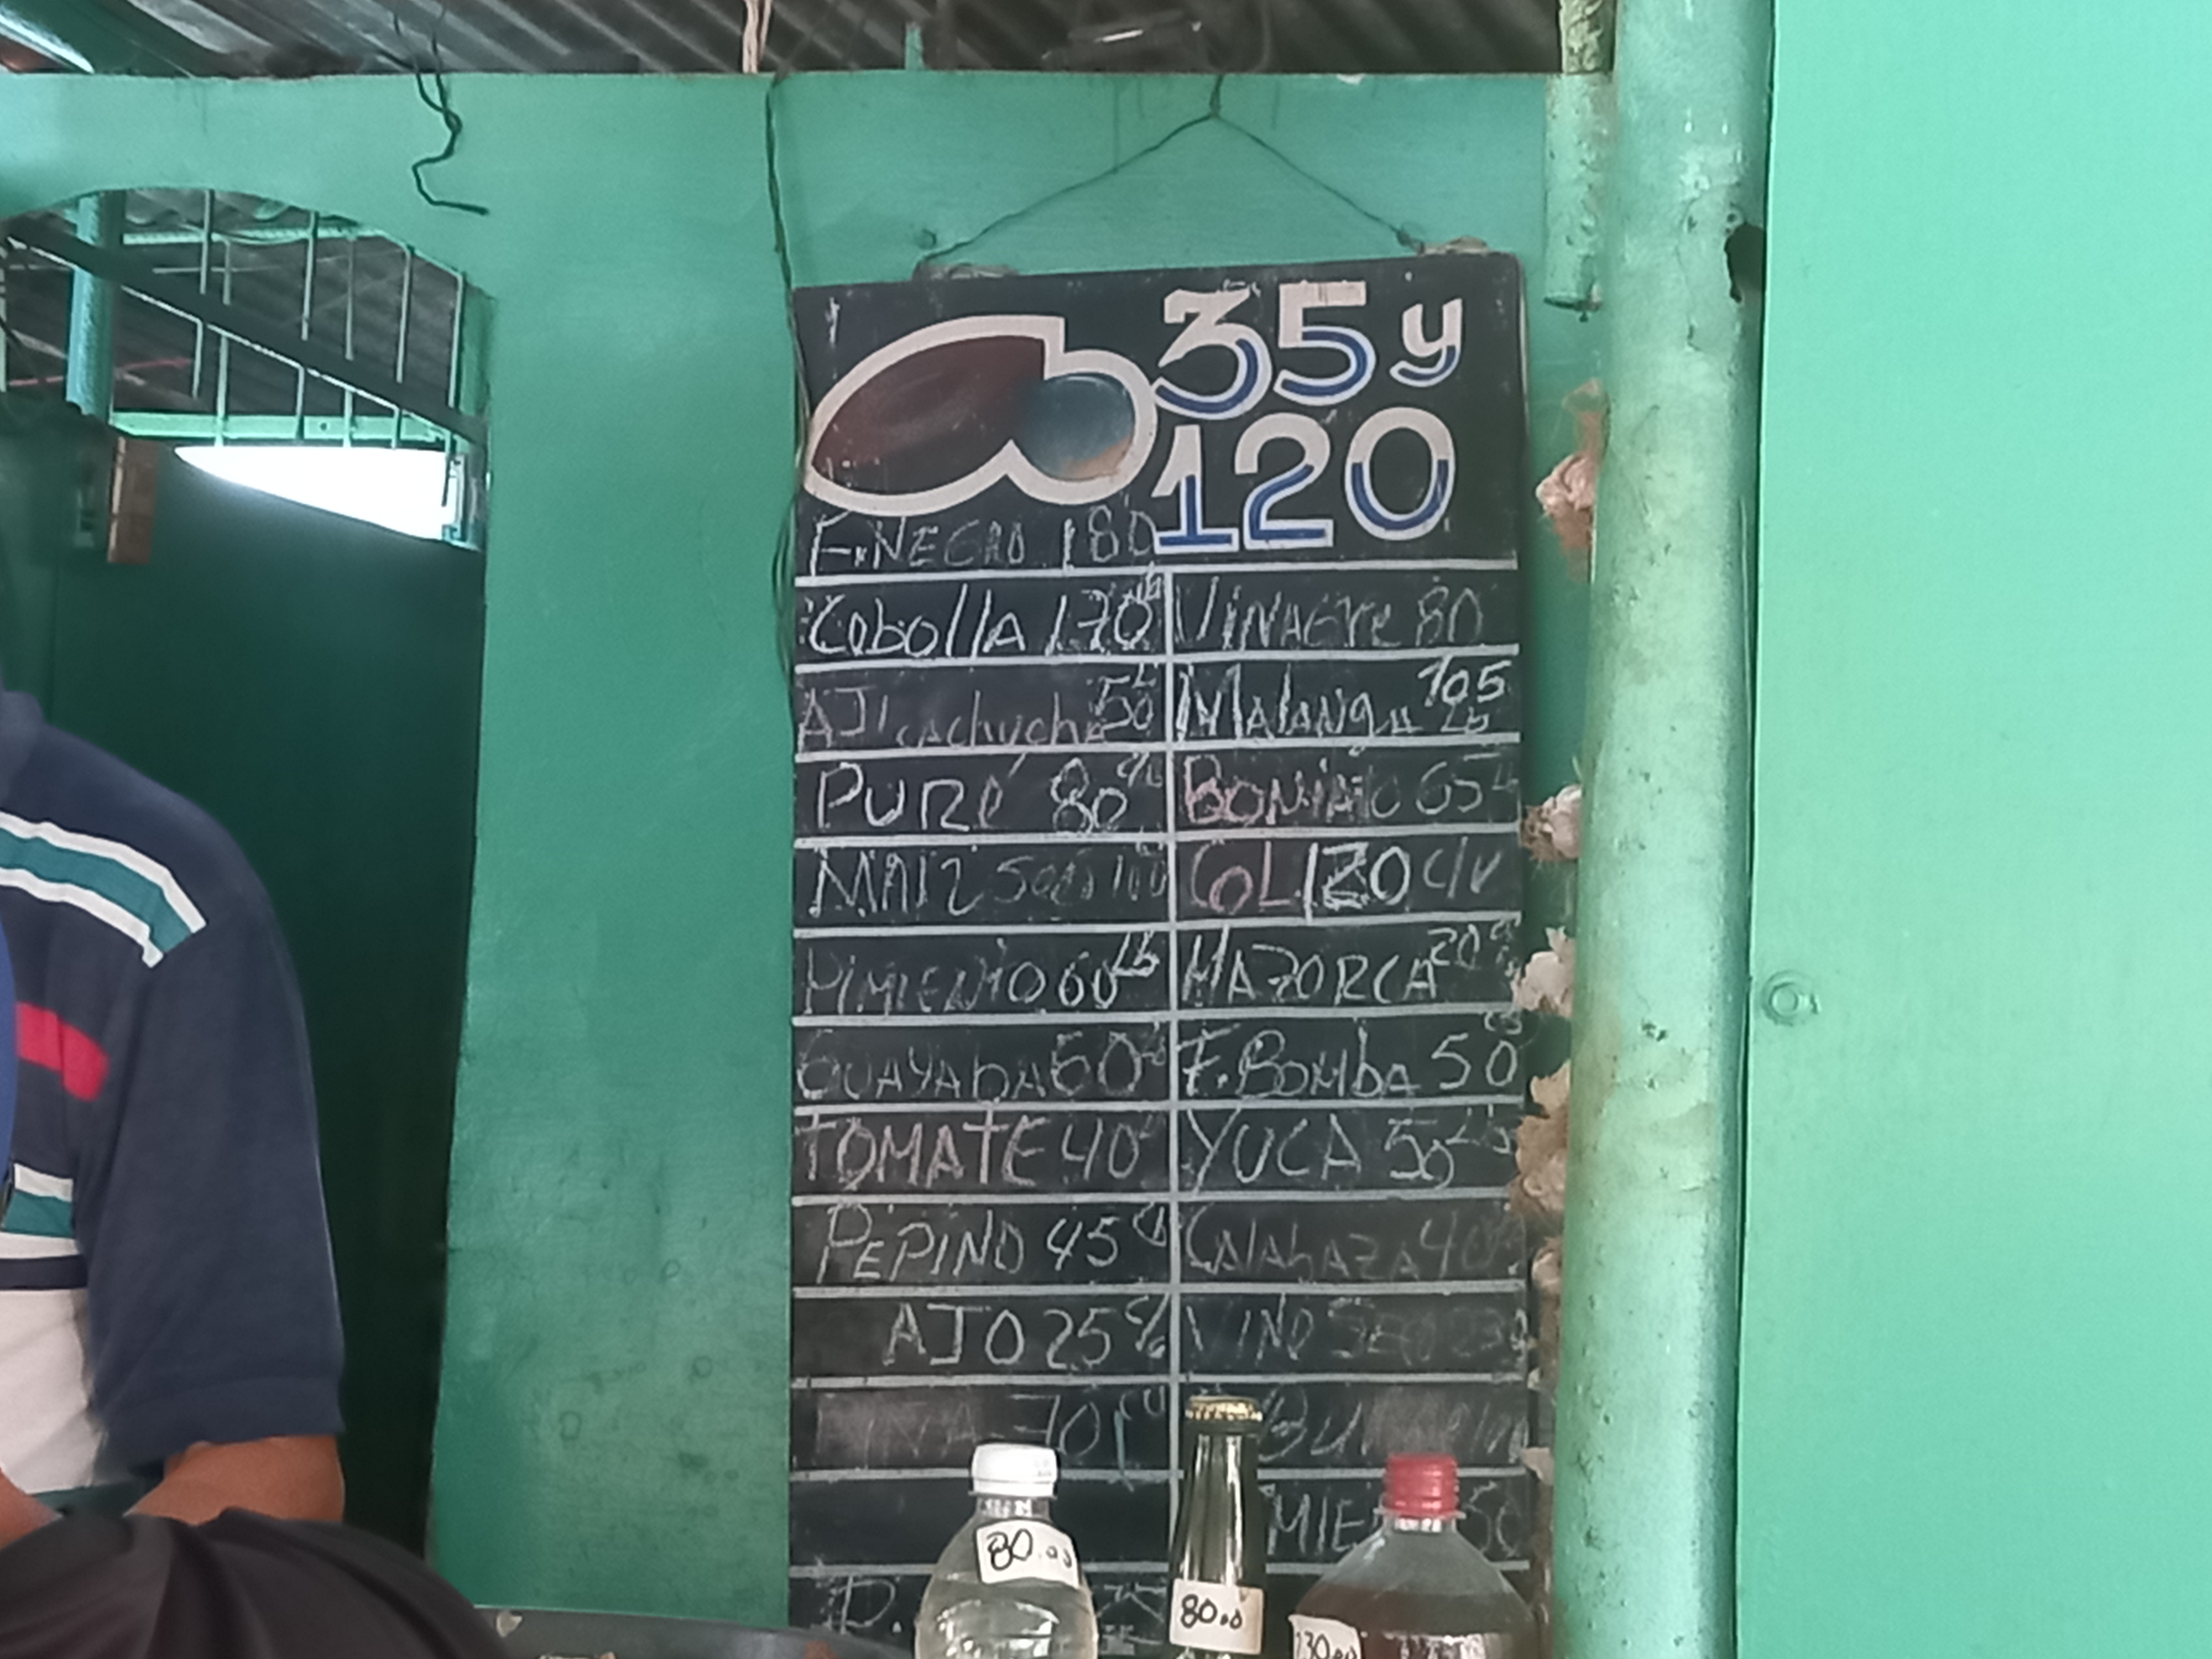 35 y
120
F. NEGRO 180
Cebolla 170 Lb
VINAGRE 80
AJI cachucha 50
Malanga 105 Lb
PURE 80
BONIATO 65
MAIZ
COL 120 c/u
PIMIENTO 60 Lb
MAZORCA 20
GUAYABA 60
F. BOMBA 50
TOMATE 40
YUCA 50 Lb
PEPINO 45
CALABAZA 40
AJO 25
VINO SECO
70
P.
80.00
80.00
130.00